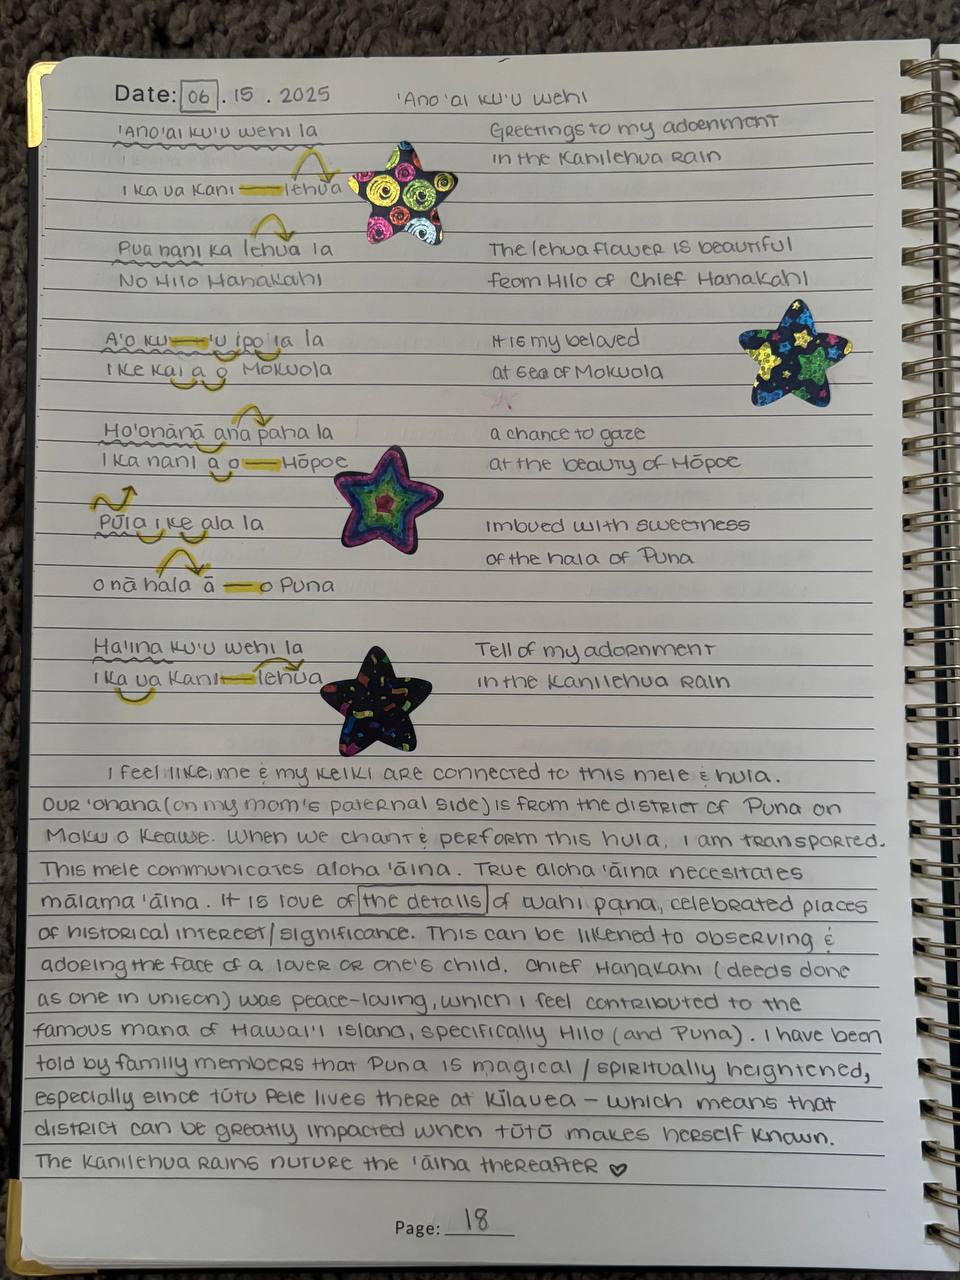 Date: 06 . 15 . 2025 'Ano'ai ku'u wehi
'Ano'ai ku'u wehi la Greetings to my adornment
i ka ua Kani — lehua in the Kanilehua Rain
Pua nani ka lehua la The lehua flower is beautiful
No Hilo Hanakahi from Hilo of Chief Hanakahi
A'o ku — 'u ipo ia la It is my beloved
i ke kai a o Mokuola at sea of Mokuola
Ho'onānā ana paha la a chance to gaze
i ka nani a o — Hōpoe at the beauty of Hōpoe
Pūia i ke ala la imbued with sweetness
of the hala of Puna
o nā hala ā — o Puna
Ha'ina ku'u wehi la Tell of my adornment
i ka ua Kani — lehua in the Kanilehua Rain
I feel like, me & my keiki are connected to this mele & hula.
Our 'ohana (on my mom's paternal side) is from the district of Puna on
Moku o Keawe. When we chant & perform this hula, I am transported.
This mele communicates aloha 'āina. True aloha 'āina necesitates
mālama 'āina. It is love of the details of wahi pana, celebrated places
of historical interest/significance. This can be likened to observing &
adoring the face of a lover or one's child. Chief Hanakahi (deeds done
as one in unison) was peace-loving, which I feel contributed to the
famous mana of Hawai'i island, specifically Hilo (and Puna). I have been
told by family members that Puna is magical / spiritually heightened,
especially since tūtū Pele lives there at Kīlauea – which means that
district can be greatly impacted when tūtū makes herself known.
The Kanilehua Rains nuture the 'āina thereafter ♡
Page: 18